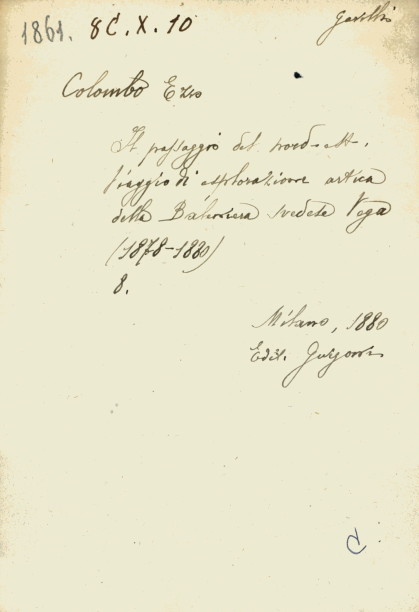 1861. 8C. X. 10
Colombo Ezio
Il passaggio del nord-est.
Viaggio di esplorazione artica
della Baleniera svedese Vega
(1878-1880)
8.
Milano, 1880
Edit.
C